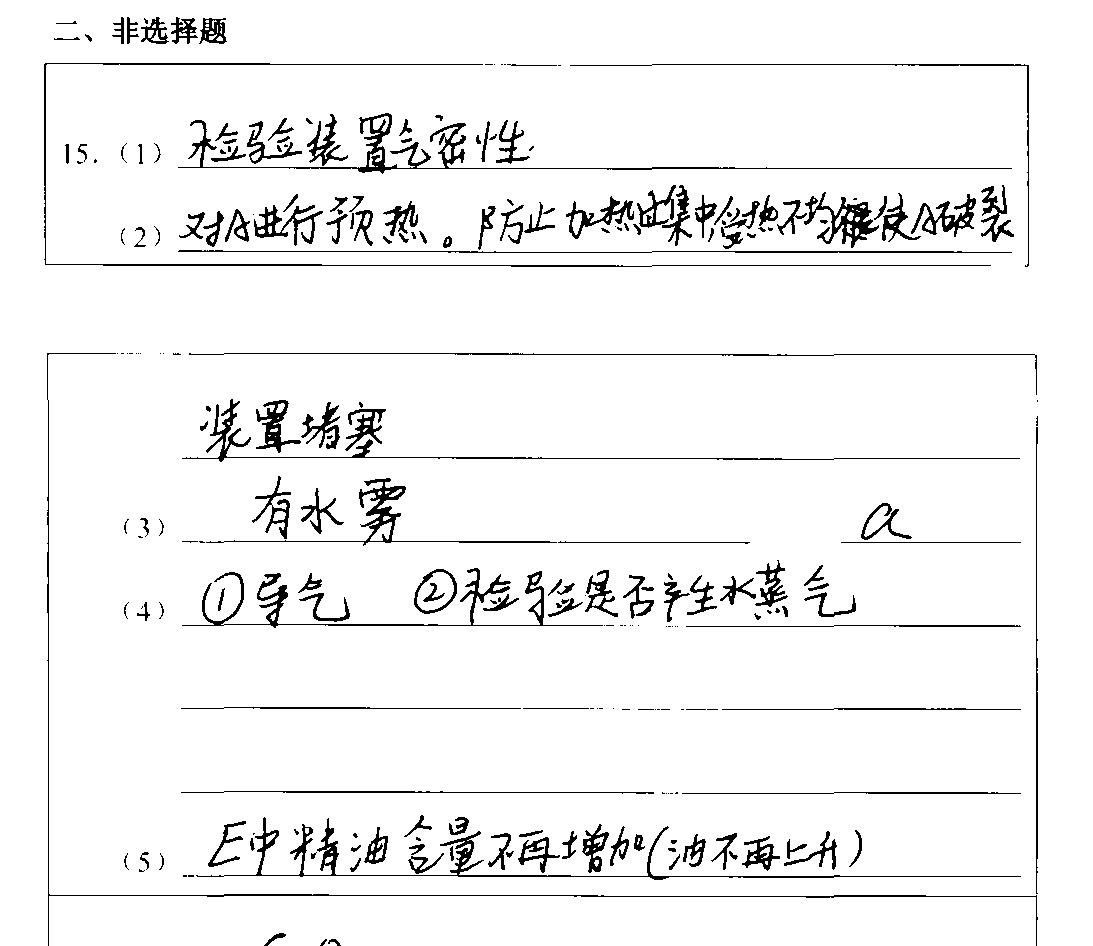 二、非选择题
15.（1）检验装置气密性.
（2）对A进行预热。防止加热时集中受热不均使A破裂
装置堵塞
（3）有水雾 a
（4）①导气 ②检验是否产生水蒸气
（5）E中精油含量不再增加(油不再上升)